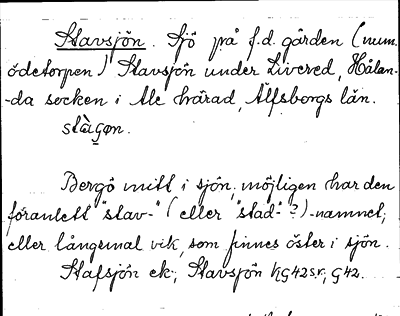 Stavsjön. Sjö på f.d. gården (num.
ödetorpen) Stavsjön under Livered, Hålan-
-da socken i Ale härad, Älfsborgs län.
Bergö mitt i sjön, möjligen har den
föranlett "stav-" (eller "stad-"?)-namnet,
eller långsmal vik, som finnes öster i sjön.
Stafsjön ek.; Stavsjön hG42sr, G42.